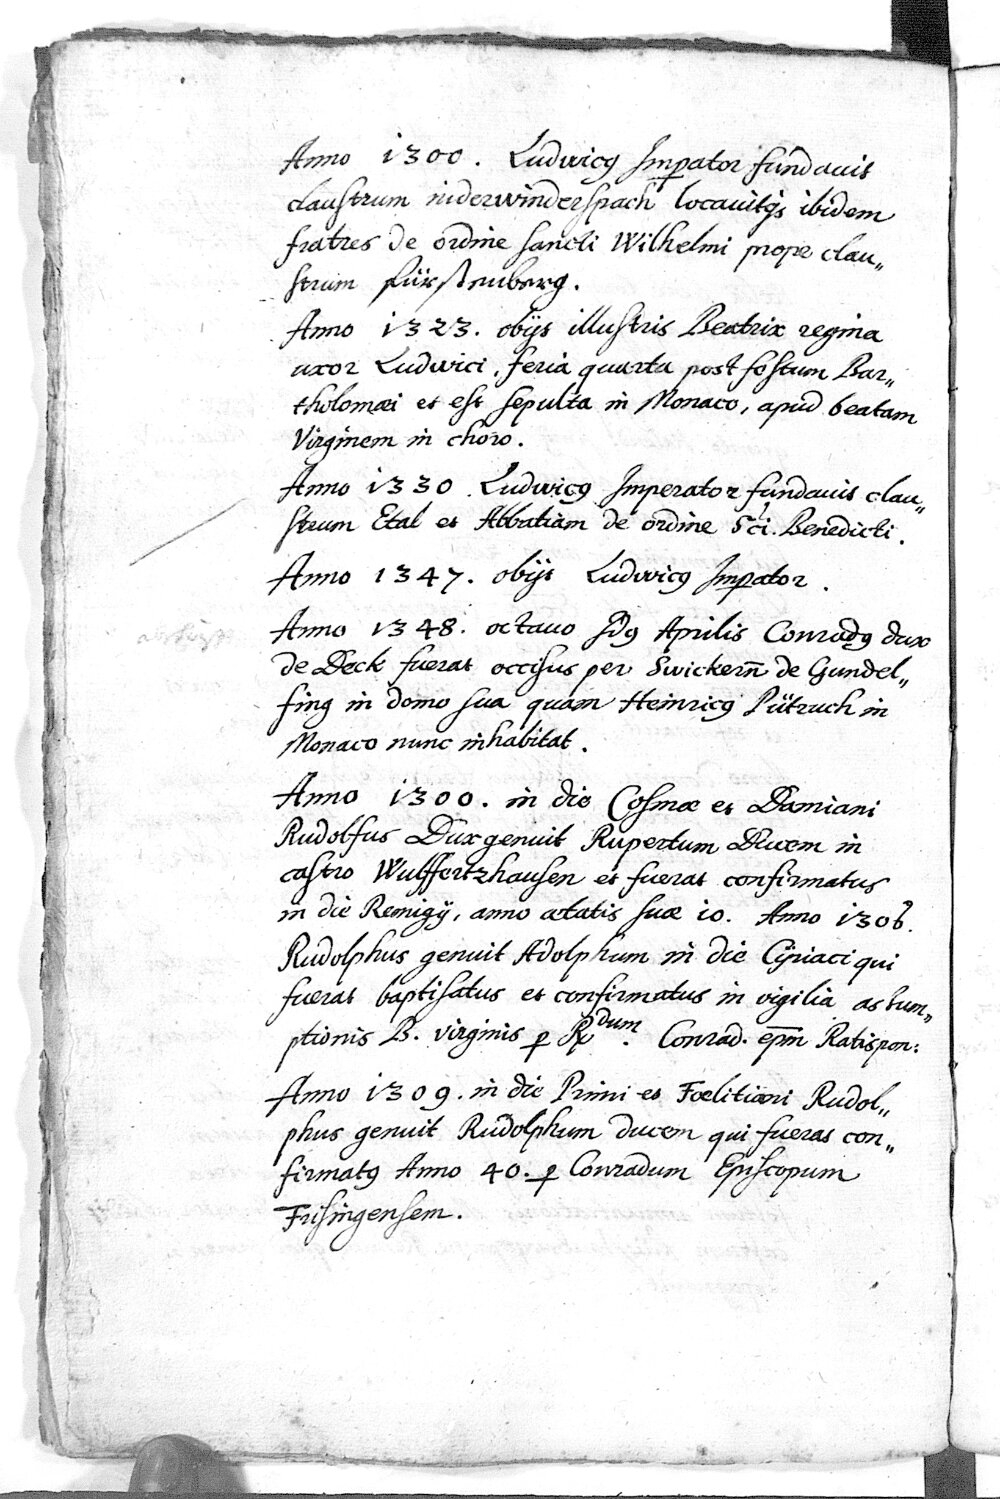 Anno 1300. Ludwicꝯ Imꝑator fundavit
claustrum niderwinderspach locavitqs ibidem
fratres de ordine sancti Wilhelmi prope clau„
strum fürstenberg.
Anno 1323. obijt illustris Beatrix regina
uxor Ludwici, feria quarta post festum Bar„
tholomæi et est sepulta in Monaco, apud beatam
Virginem in choro.
Anno 1330. Ludwicꝯ Imperator fundavit clau„
strum Etal et Abbatiam de ordine Sci. Benedicti.
Anno 1347. obijt Ludwicꝯ Imꝑator.
Anno 1348. octavo Idꝯ Aprilis Conradꝯ dux
de Deck fuerat occisus per Swickerm̄ de Gundel„
fing in domo sua quam Heinricꝯ Pütruch in
Monaco nunc inhabitat.
Anno 1300. in die Cosmæ et Damiani
Rudolfus Dux genuit Rupertum Ducem in
castro Wulffertzhausen et fuerat confirmatus
in die Remigij, anno ætatis suæ 10. Anno 1306.
Rudolphus genuit Adolphum in die Cÿriaci qui
fuerat baptisatus et confirmatus in vigilia assum„
ptionis B. virginis ꝑ Rdum. Conrad. epm̄ Ratispon:
Anno 1309. in die Primi et Fœlitiani Rudol„
phus genuit Rudolphum ducem qui fuerat con„
firmatꝯ Anno 40. ꝑ Conradum Episcopum
Frisingensem.